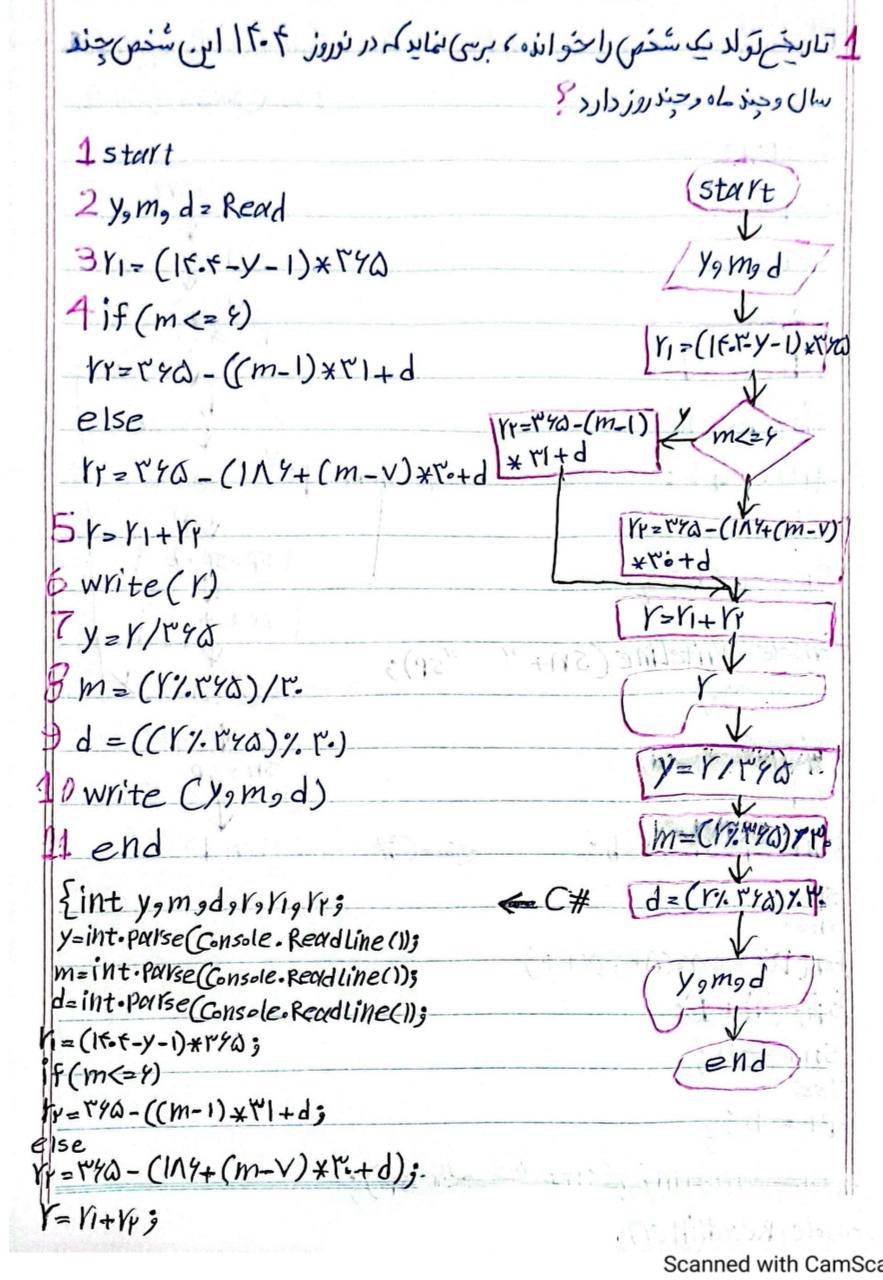 1 تاریخ تولد یک شخص را خوانده، بررسی نماید که در نوروز ۱۴۰۴ این شخص چند
سال و چند ماه و چند روز دارد؟
1 start
2 y, m, d = Read
3 r۱ = (۱۴۰۴-y-۱)*۳۶۵
4 if (m<=۶)
r۲=۳۶۵-((m-۱)*۳۱+d
else
r۲=۳۶۵-(۱۸۶+(m-۷)*۳۰+d
5 r=r۱+r۲
6 write(r)
7 y=r/۳۶۵
8 m=(r%۳۶۵)/۳۰
9 d=((r%۳۶۵)%۳۰)
10 write (y, m, d)
11 end
start
y, m, d
r۱=(۱۴۰۳-y-۱)*۳۶۵
m<=۶
y
r۲=۳۶۵-(m-۱)
*۳۱+d
r۲=۳۶۵-(۱۸۶+(m-۷)
*۳۰+d
r=r۱+r۲
r
y=r/۳۶۵
m=(r%۳۶۵)/۳۰
d=(r%۳۶۵)%۳۰
y, m, d
end
← C#
{int y, m, d, r, r۱, r۲;
y=int.parse(Console.ReadLine());
m=int.parse(Console.ReadLine());
d=int.parse(Console.ReadLine());
r۱=(۱۴۰۴-y-۱)*۳۶۵;
if(m<=۶)
r۲=۳۶۵-((m-۱)*۳۱+d;
else
r۲=۳۶۵-(۱۸۶+(m-۷)*۳۰+d);
r=r۱+r۲;
Scanned with CamSca